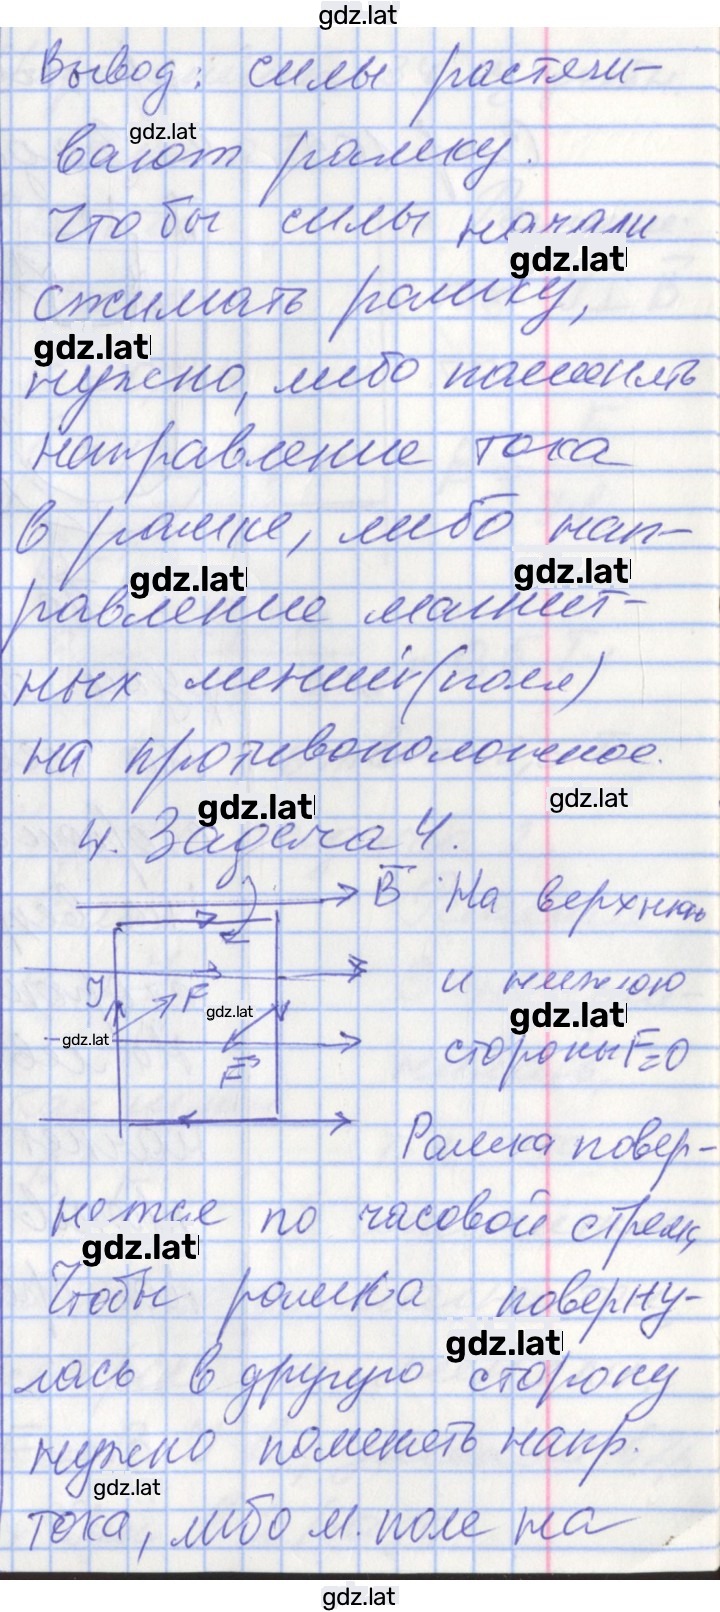 gdz.lat
Вывод: силы растяги-
gdz.lat
вают рамку.
Чтобы силы начали
gdz.lat
сжимать рамку,
gdz.lat
нужно, либо поменять
направление тока
в рамке, либо нап-
gdz.lat gdz.lat
равление магнит-
ных линий (поля)
на противоположное.
gdz.lat gdz.lat
4. Задача 4.
B На верхнюю
и нижнюю
I F gdz.lat gdz.lat
gdz.lat
стороны F=0
F
Рамка повер-
нется по часовой стрелк
gdz.lat
Чтобы рамка поверну-
gdz.lat
лась в другую сторону
нужно поменять напр.
gdz.lat
тока, либо м. поле на
gdz.lat